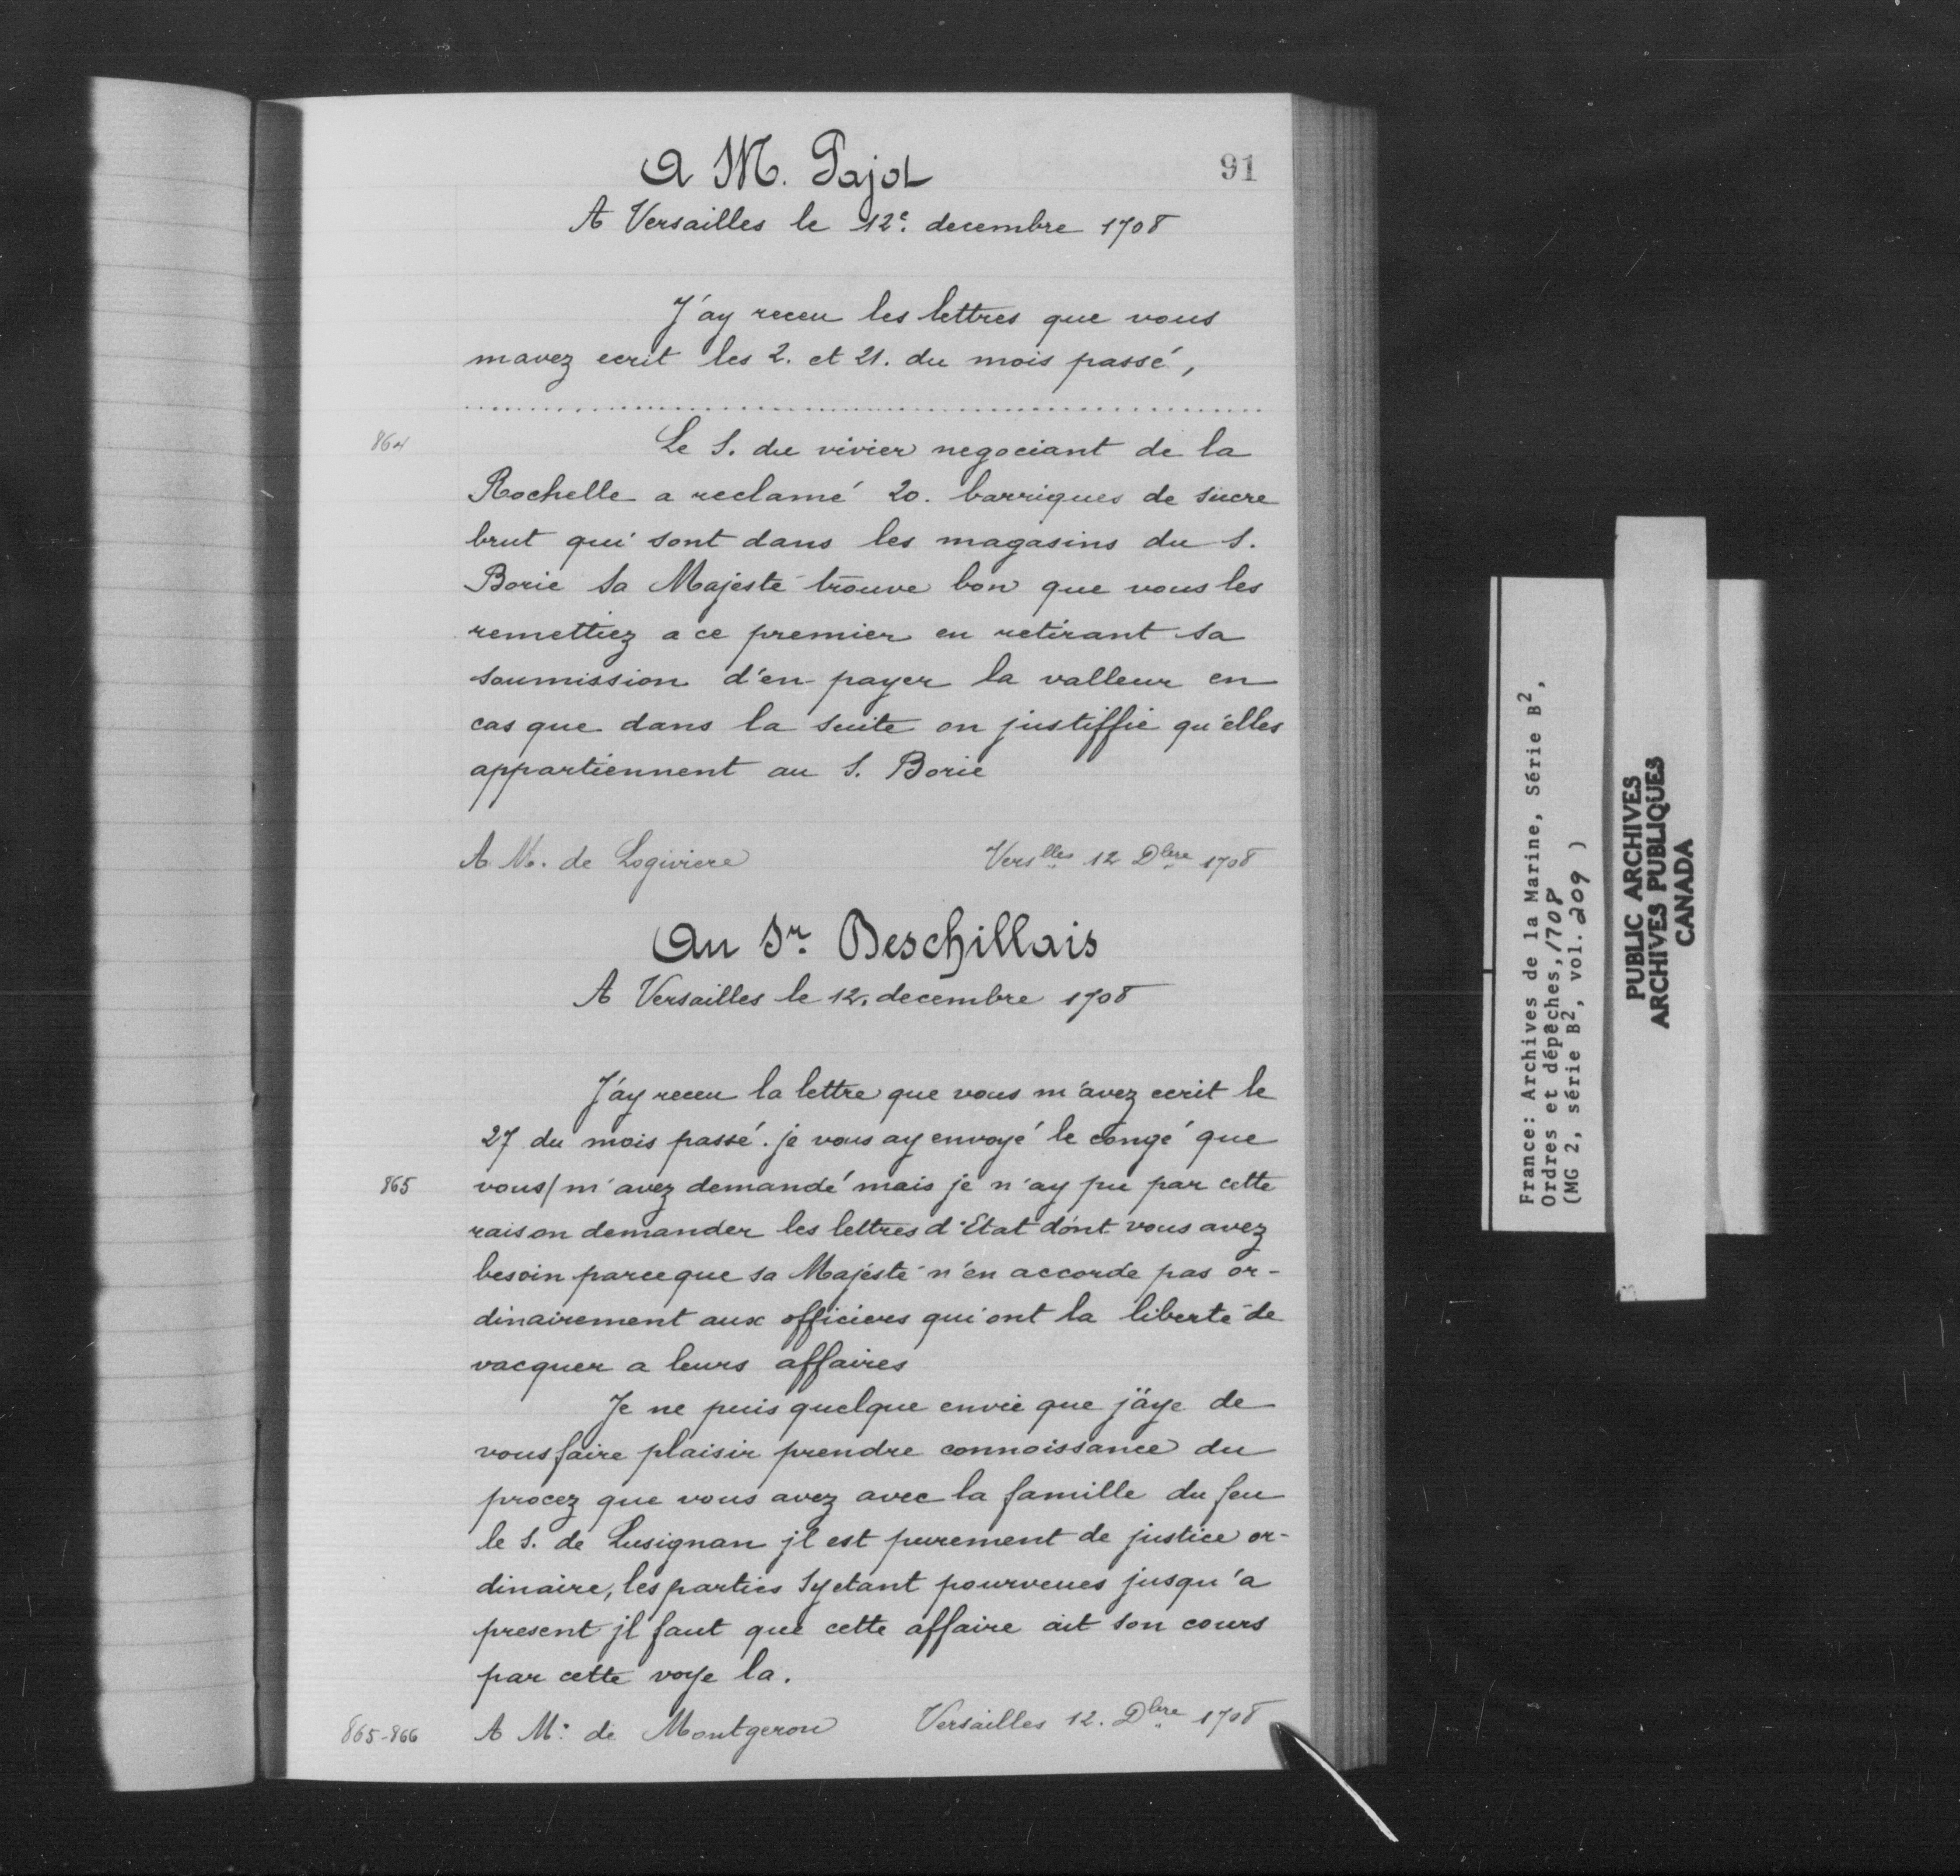 91
A M. Pajot
A Versailles le 12e. decembre 1708
J'ay receu les lettres que vous
mavez ecrit les 2. et 21. du mois passé,
864
Le S. du vivier negociant de la
Rochelle a reclamé 20. barriques de sucre
brut qui sont dans les magasins du S.
Borie Sa Majesté trouve bon que vous les
remettiez a ce premier en retirant sa
soumission d'en payer la valleur en
cas que dans la suite on justiffie qu'elles
appartiennent au S. Borie
A M. de Logiviere Verslles 12 Dbre 1708
Au Sr. Deschillais
A Versailles le 12. decembre 1708
J'ay receu la lettre que vous m'avez ecrit le
27 du mois passé. je vous ay envoyé le congé que
865
vous/ m'avez demandé mais je n'ay pu par cette
raison demander les lettres d'Etat dont vous avez
besoin parceque sa Majesté n'en accorde pas or-
dinairement aux officiers qui ont la liberté de
vacquer a leurs affaires
Je ne puis quelque envie que j'aye de
vous faire plaisir prendre connoissance du
procez que vous avez avec la famille du feu
le S. de Lusignan jl est purement de justice or-
dinaire, les parties Syetant pourveues jusqu'a
present jl faut que cette affaire ait son cours
par cette voye la.
865-866
A Mr. de Montgeron Versailles 12. Dbre 1708
France: Archives de la Marine, Série B2,
Ordres et dépêches, 1708
(MG 2, série B2, vol. 209 )
PUBLIC ARCHIVES
ARCHIVES PUBLIQUES
CANADA